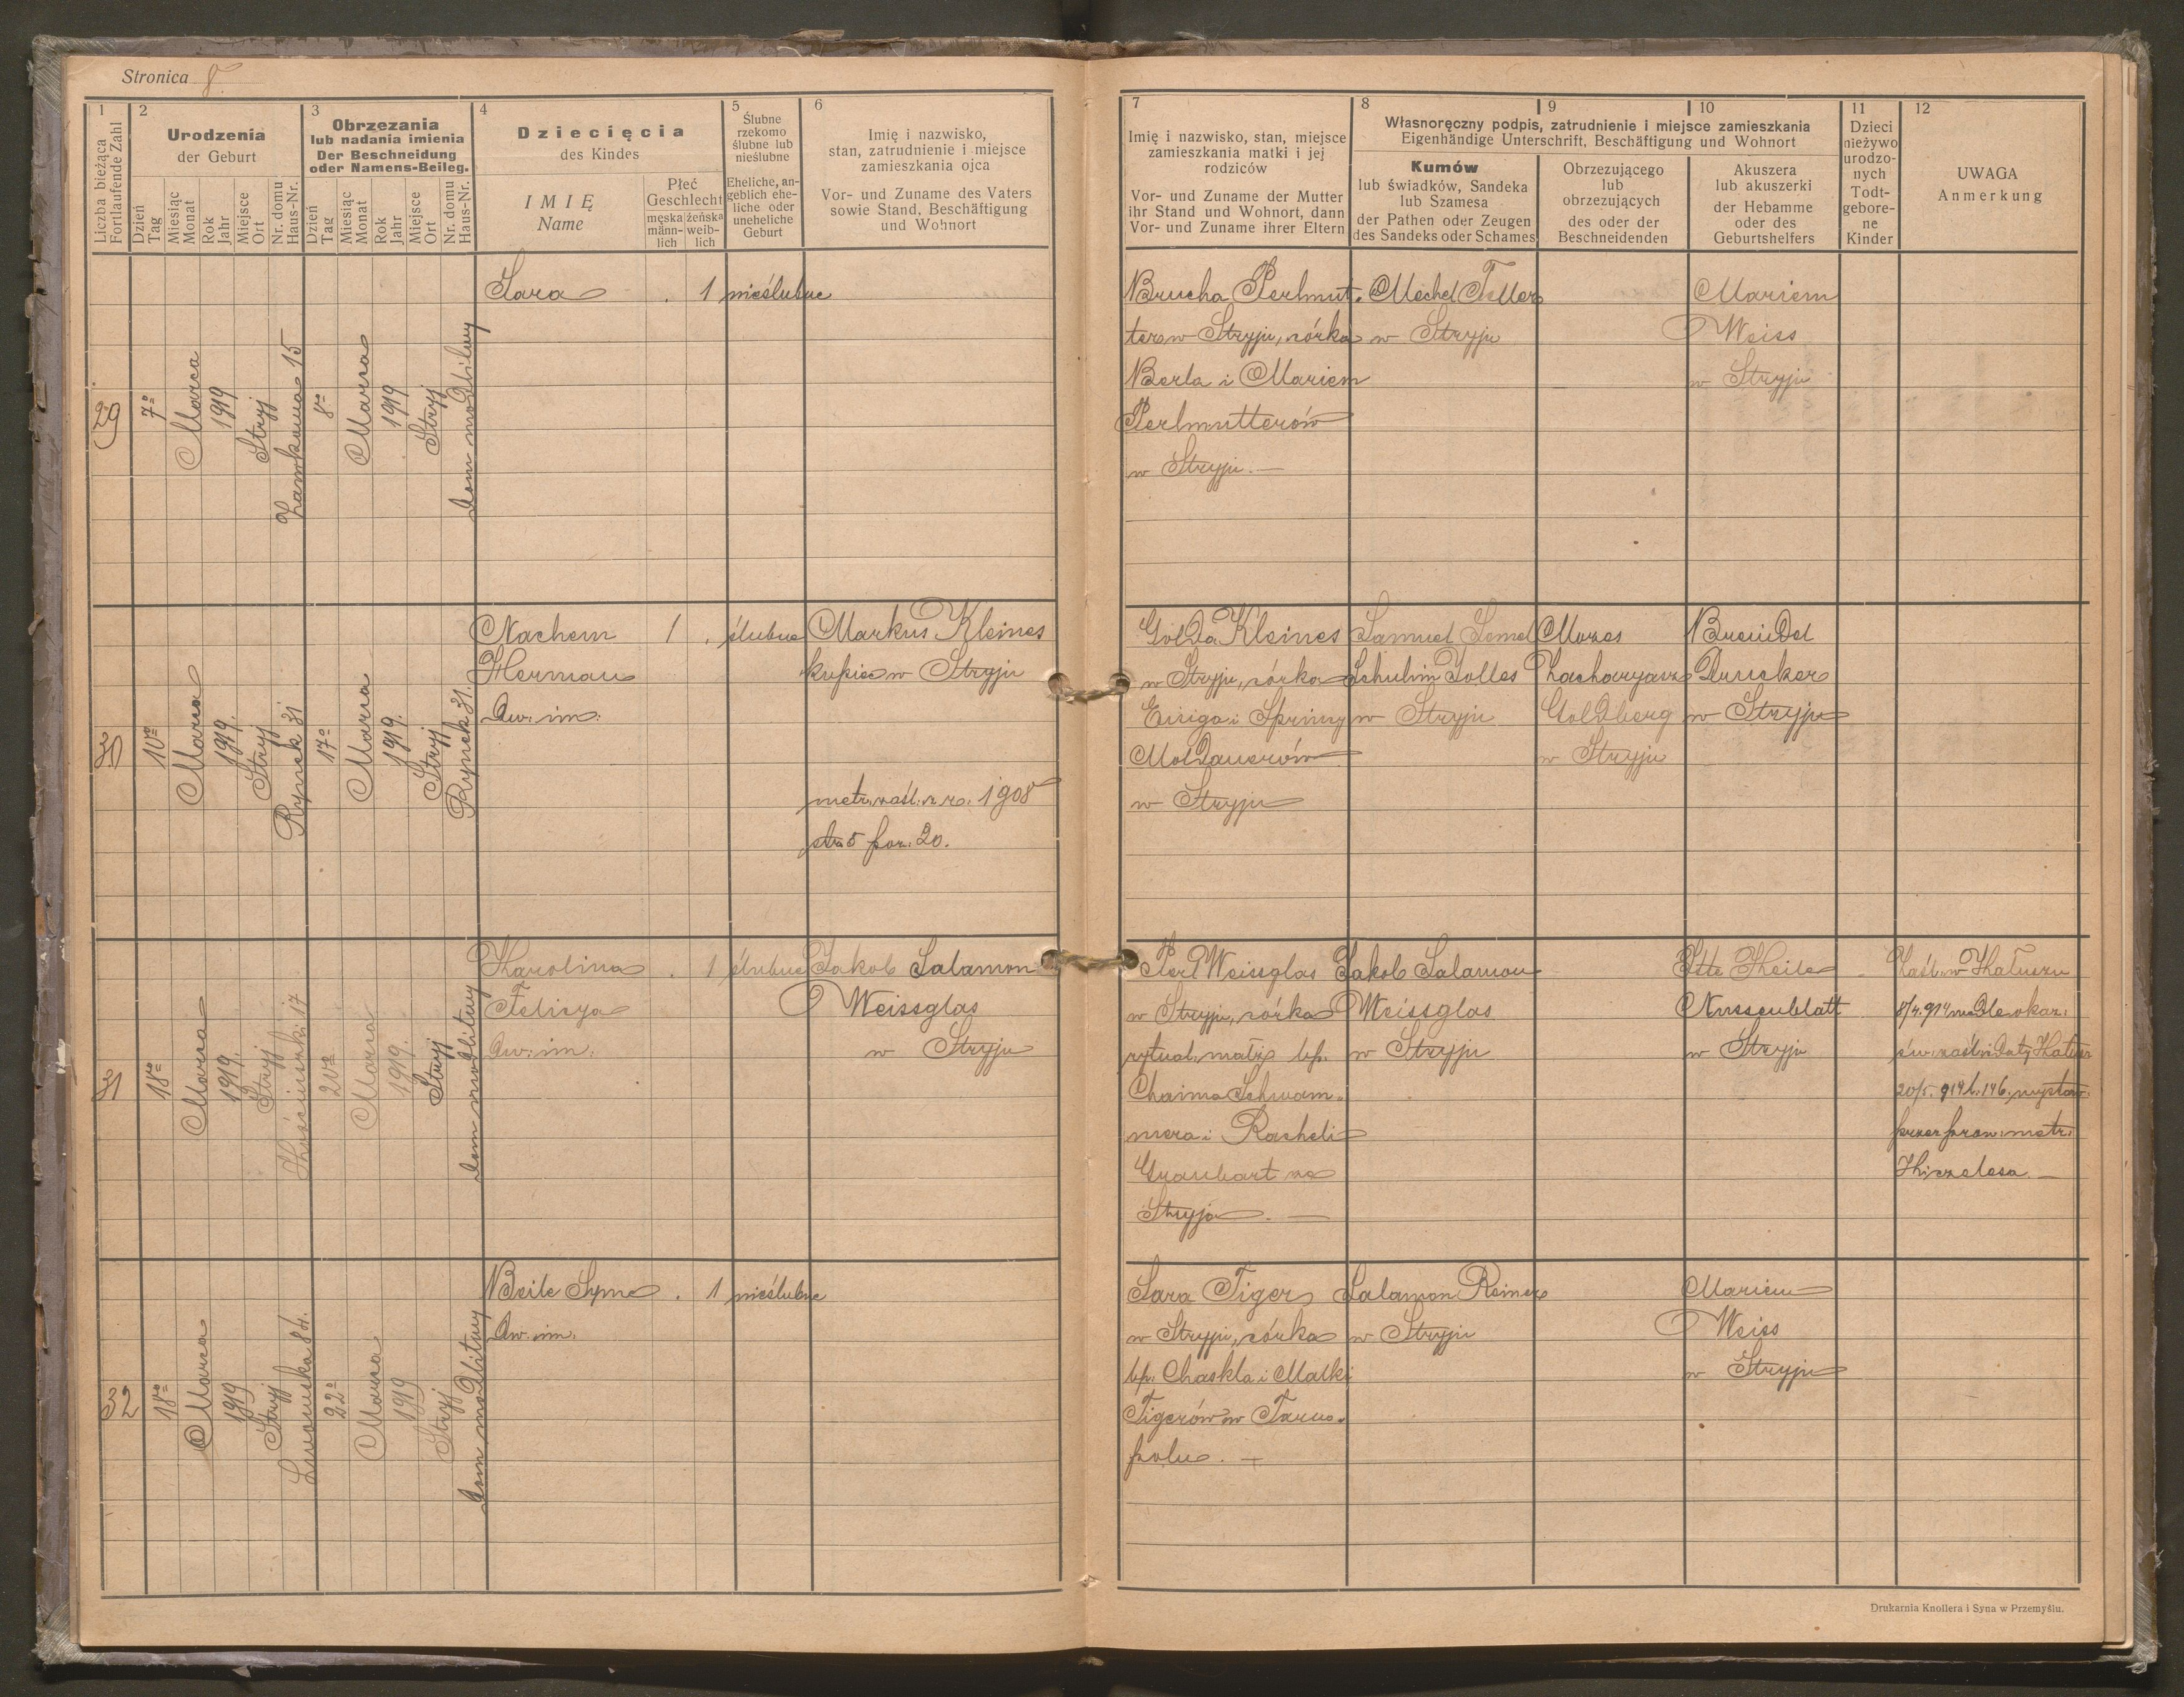 Stronica 8.
1
Liczba bieżąca
Fortlaufende Zahl
2
Urodzenia
der Geburt
Dzień
Tag
Miesiąc
Monat
Rok
Jahr
Miejsce
Ort
Nr. domu
Haus-Nr.
3
Obrzezania
lub nadania imienia
Der Beschneidung
oder Namens-Beileg.
Dzień
Tag
Miesiąc
Monat
Rok
Jahr
Miejsce
Ort
Nr. domu
Haus-Nr.
4
Dziecięcia
des Kindes
IMIĘ
Name
Płeć
Geschlecht
męska
männ-
lich
żeńska
weib-
lich
5
Ślubne
rzekomo
ślubne lub
nieślubne
Eheliche, an-
geblich ehe-
liche oder
uneheliche
Geburt
6
Imię i nazwisko,
stan, zatrudnienie i miejsce
zamieszkania ojca
Vor- und Zuname des Vaters
sowie Stand, Beschäftigung
und Wohnort
7
Imię i nazwisko, stan, miejsce
zamieszkania matki i jej
rodziców
Vor- und Zuname der Mutter
ihr Stand und Wohnort, dann
Vor- und Zuname ihrer Eltern
8
9
10
Własnoręczny podpis, zatrudnienie i miejsce zamieszkania
Eigenhändige Unterschrift, Beschäftigung und Wohnort
Kumów
lub świadków, Sandeka
lub Szamesa
der Pathen oder Zeugen
des Sandeks oder Schames
Obrzezującego
lub
obrzezujących
des oder der
Beschneidenden
Akuszera
lub akuszerki
der Hebamme
oder des
Geburtshelfers
11
Dzieci
nieżywo
urodzo-
nych
Todt-
gebore-
ne
Kinder
12
UWAGA
Anmerkung
29
7º
Marca
1919
Stryj
Zamkowa 15
8º
Marca
1919
Stryj
dom modlitwy
Sara
. 1
nieślubne
Brucha Perlmut-
ter w Stryju, córka
Berla i Mariem
Perlmutterów
w Stryju. —
Mechel Teller
w Stryju
Mariem
Weiss
w Stryju
30
10º
Marca
1919.
Stryj
Rynek 31
17º
Marca
1919.
Stryj
Rynek 31.
Nachem
Herman
dw. im.
1 .
ślubne
Markus Kleines
kupiec w Stryju
metr. zaśl. z r. 1908
str. 5 poz. 20.
Golda Kleines
w Stryju, córka
Eisiga i Spriny
Moldauerów
w Stryju
Samuel Semel
Schulim Tolles
w Stryju
Mozes
Zacharyasz
Goldberg
w Stryju
Breindel
Drucker
w Stryju
31
18º
Marca
1919.
Stryj
Kościuszki 17
20º
Marca
1919.
Stryj
dom modlitwy
Karolina
Felicya
dw. im.
. 1
ślubne
Jakob Salamon
Weissglas
w Stryju
Perl Weissglas
w Stryju, córka
rytual. małż. bp.
Chaima Schwam-
mera i Racheli
Graubart ze
Stryja. —
Jakob Salamon
Weissglas
w Stryju
Itte Theile
Nussenblatt
w Stryju
Zaśl. w Kałuszu
8/4. 914 wedle okaz.
św. zaśl. z daty Kałusz
20/5. 914 l. 146, wystaw.
przez prow. metr.
32
18º
Marca
1919
Stryj
Lwowska 84.
22º
Marca
1919
Stryj
dom modlitwy
Beile Syme
dw. im.
. 1
nieślubne
Sara Tiger
w Stryju, córka
bp. Chaskla i Malki
Tigerów w Tarno-
polu. —
Salamon Reiner
w Stryju
Mariem
Weiss
w Stryju
Drukarnia Knollera i Syna w Przemyślu.